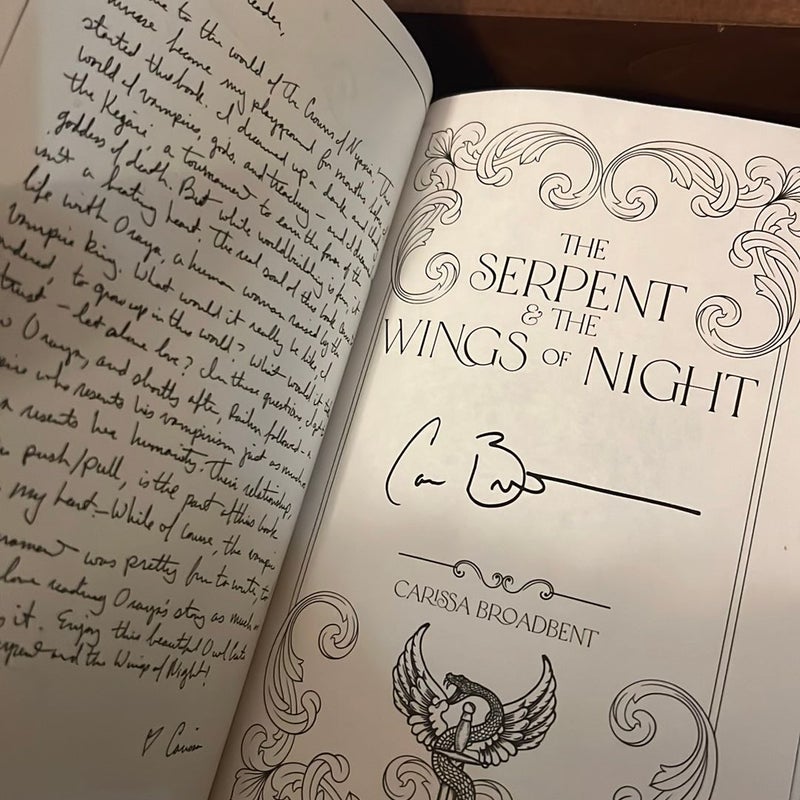 eader,
me to the world of The Crowns of Nyaxia. This
universe become my playground for months before I
started this book. I dreamed up a dark and deadly
world of vampires, gods, and treachery – and I dreamed
the Kejari, a tournament to earn the favor of the
goddess of death. But while worldbuilding is fun, it
isn't a beating heart. The real soul of this book
life with Oraya, a human woman raised by the
vampire king. What would it really be like, I
ondered, to grow up in this world? What would it
trust – let alone love? In those questions I
Oraya, and shortly after, Raihn followed – a
pire who resents his vampirism just as much a
resents her humanity. Their relationship,
push/pull, is the part of this book
my heart – While of course, the vampi
rnament was pretty fun to write, to
love reading Oraya's story as much
it. Enjoy this beautiful OwlCrate
erpent and the Wings of Night!
♥ Carissa
THE
SERPENT
& THE
WINGS OF NIGHT
CARISSA BROADBENT